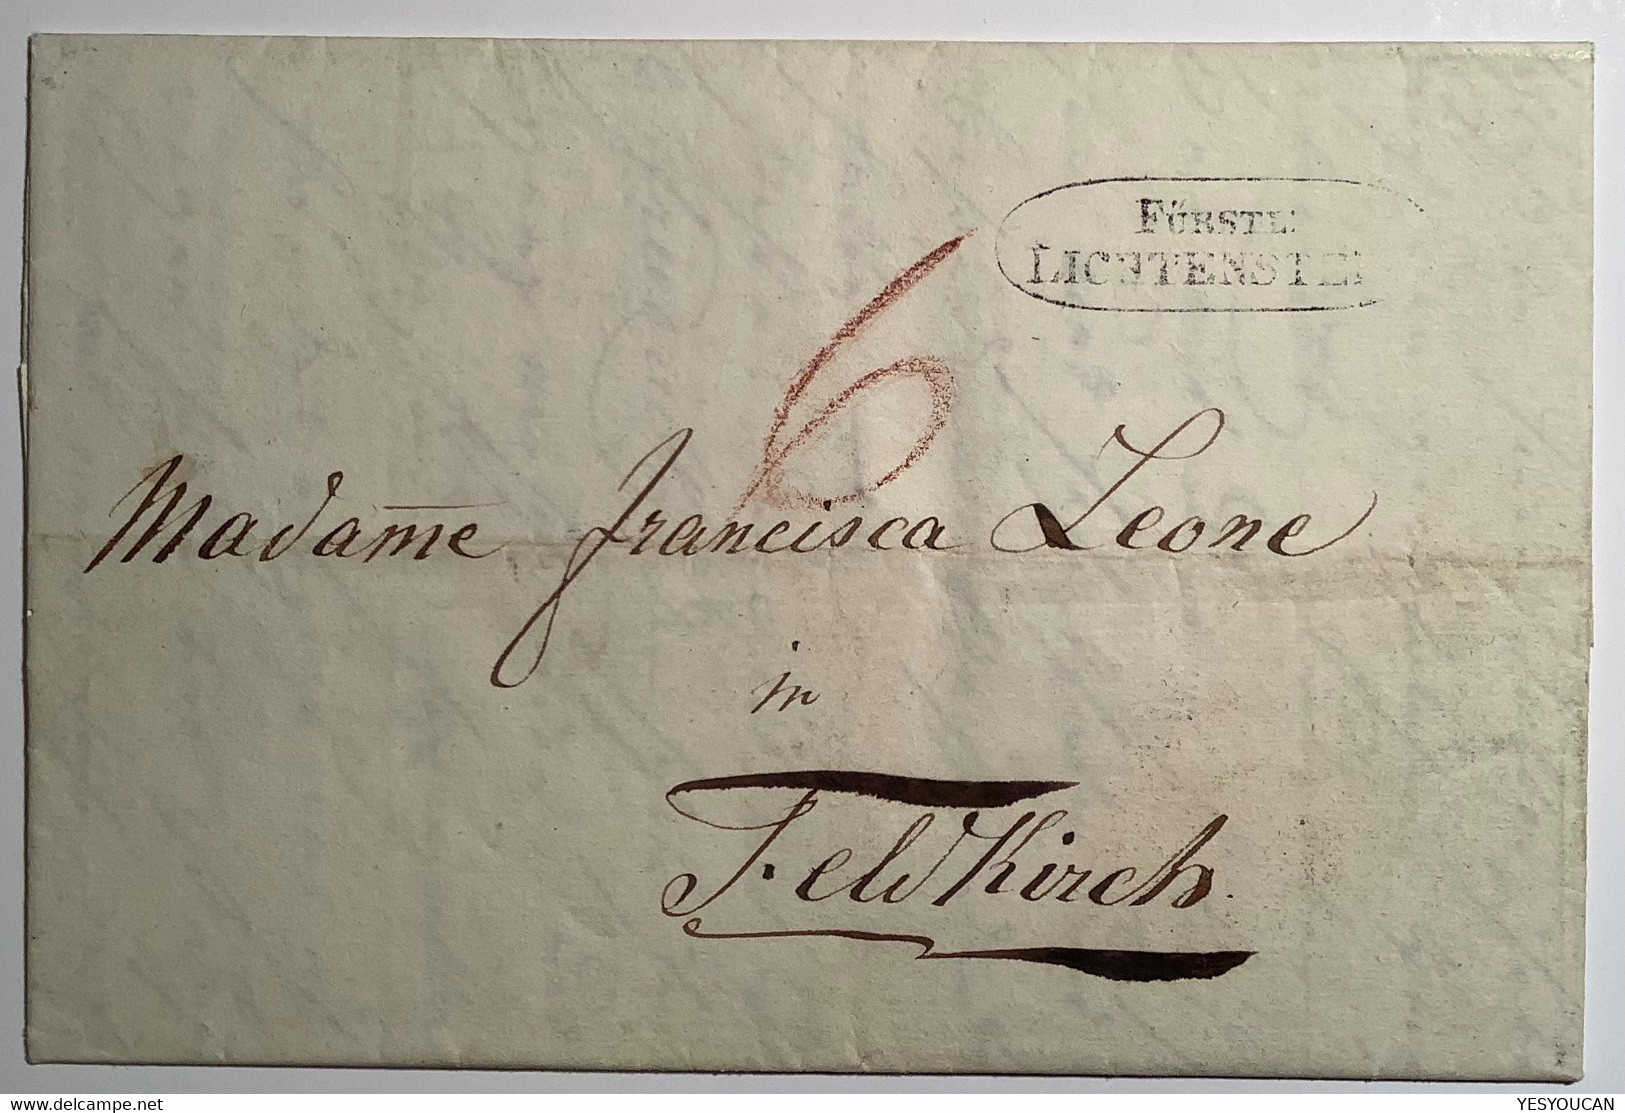 FŰRSTL:
LICHTENSTEI
6
Madame Francisca Leone
in
Feldkirch.
www.delcampe.net
YESYOUCAN